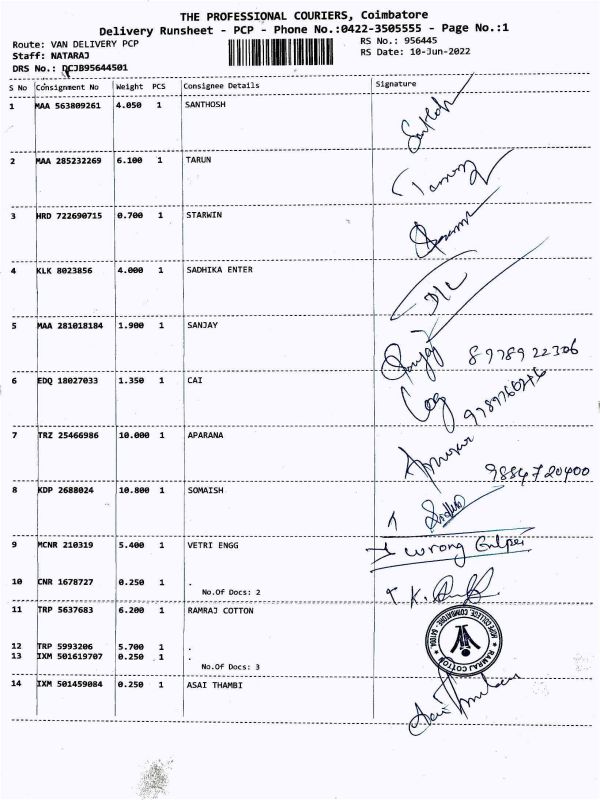 THE PROFESSIONAL COURIERS, Coimbatore
Delivery Runsheet - PCP - Phone No.:0422-3505555 - Page No.:1
Route: VAN DELIVERY PCP RS No.: 956445
Staff: NATARAJ RS Date: 10-Jun-2022
DRS No.: DCJB95644501
S No Consignment No Weight PCS Consignee Details Signature
1 MAA 563809261 4.050 1 SANTHOSH
2 MAA 285232269 6.100 1 TARUN
3 HRD 722690715 0.700 1 STARWIN
4 KLK 8023856 4.000 1 SADHIKA ENTER
5 MAA 281018184 1.900 1 SANJAY Sanjay 8978922306
6 EDQ 18027033 1.350 1 CAI
7 TRZ 25466986 10.000 1 APARANA
9884720400
8 KDP 2688024 10.800 1 SOMAISH
9 MCNR 210319 5.400 1 VETRI ENGG wrong
10 CNR 1678727 0.250 1 .
No.Of Docs: 2
11 TRP 5637683 6.200 1 RAMRAJ COTTON
HOPE COLLEGE, COIMBATORE - 641004
RAMRAJ COTTON
12 TRP 5993206 5.700 1 .
13 IXM 501619707 0.250 1 .
No.Of Docs: 3
14 IXM 501459084 0.250 1 ASAI THAMBI